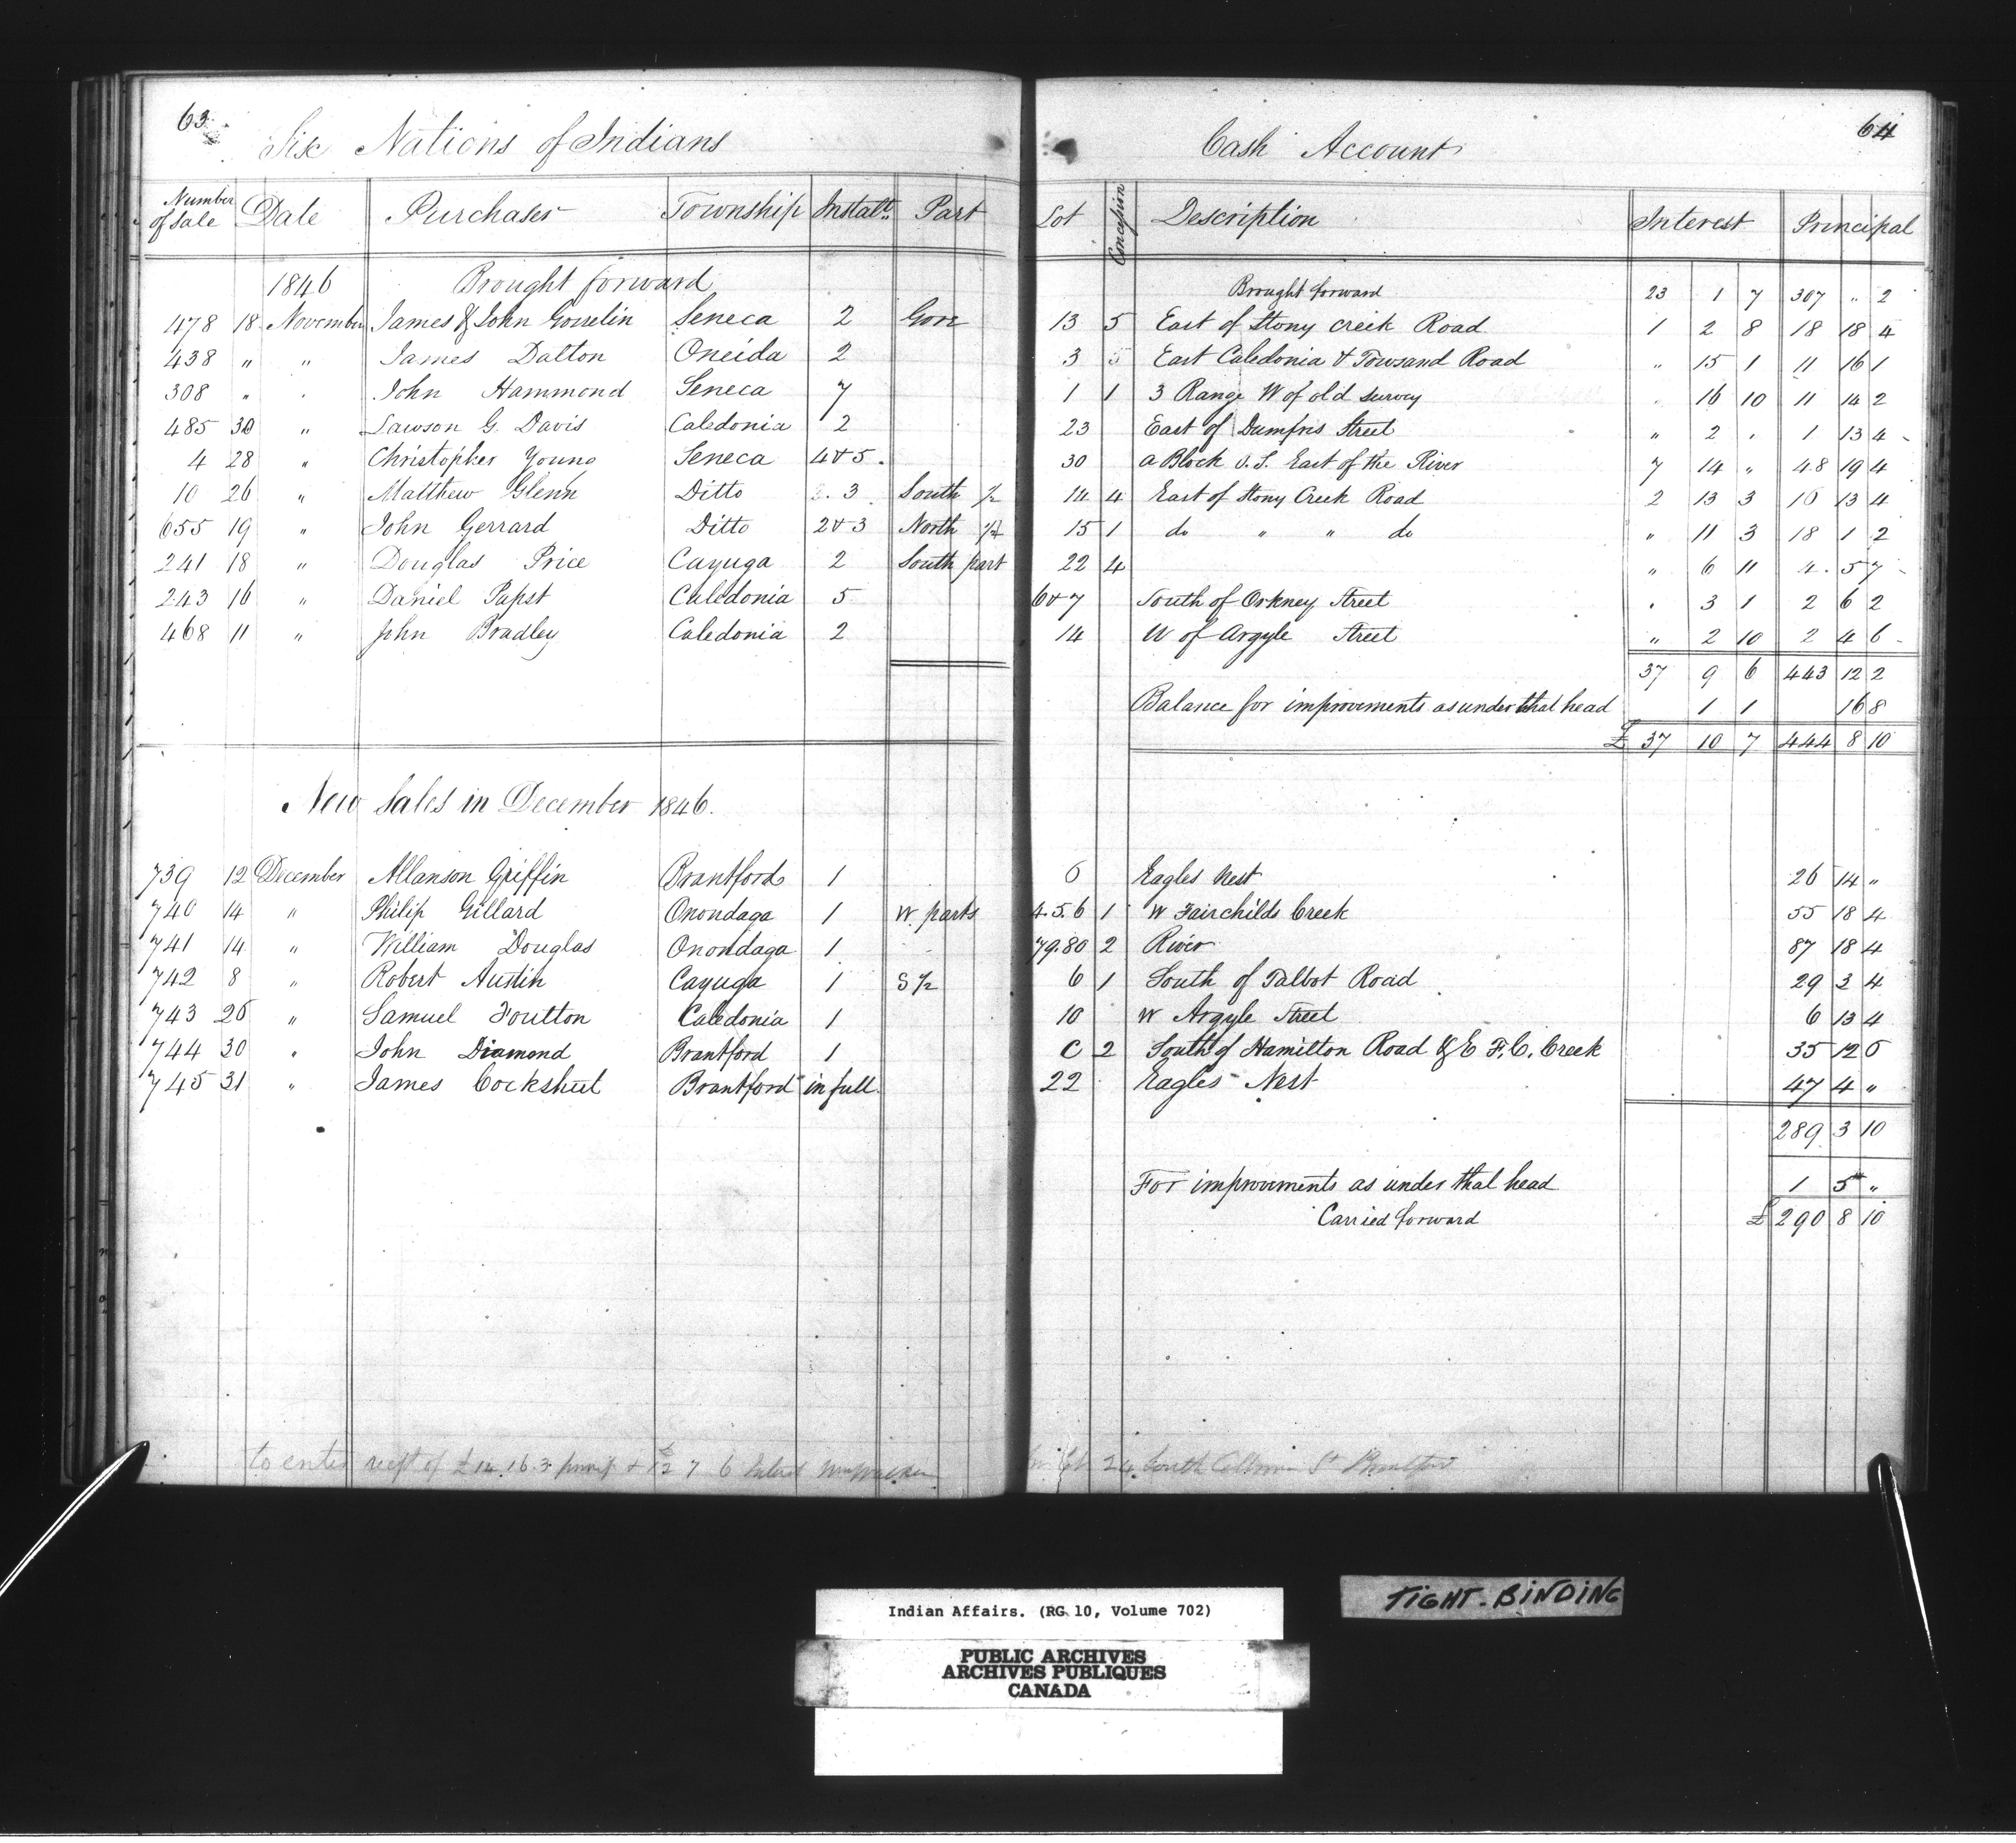 63
Six Nations of Indians
Number of Sale Date Purchaser Township Instalt. Part
1846 Brought forward
478 18 November James & John Gosselin Seneca 2 Gore
438 " " James Dalton Oneida 2
308 " " John Hammond Seneca 7
485 30 " Lawson G. Davis Caledonia 2
4 28 " Christopher Young Seneca 4 & 5.
10 26 " Matthew Glenn Ditto 3 South ½
655 19 " John Gerrard Ditto 2 & 3 North ½
241 18 " Douglas Price Cayuga 2 South part
243 16 " Daniel Papst Caledonia 5
468 11 " John Bradley Caledonia 2
New Sales in December 1846.
739 12 December Allanson Griffin Brantford 1
740 14 " Philip Gillard Onondaga 1 W. parts
741 14 " William Douglas Onondaga 1
742 8 " Robert Austin Cayuga 1 S ½
743 26 " Samuel Foulton Caledonia 1
744 30 " John Diamond Brantford 1
745 31 " James Cockshutt Brantford in full.
to enter rect of £14.16.3 princp + £2 7 6
64
Cash Account
Lot Concession Description Interest Principal
Brought forward 23 1 7 307 " 2
13 5 East of Stony Creek Road 1 2 8 18 18 4
3 5 East Caledonia & Townsand Road " 15 1 11 16 1
1 1 3 Range W of old survey " 16 10 11 14 2
23 East of Dumfris Street " 2 " 1 13 4
30 a Block O.S. East of the River 7 14 " 48 19 4
14 4 East of Stony Creek Road 2 13 3 16 13 4
15 1 do " " do " 11 3 18 1 2
22 4 " 6 11 4 5 7
6 & 7 South of Orkney Street " 3 1 2 6 2
14 W of Argyle Street " 2 10 2 4 6
37 9 6 443 12 2
Balance for improvements as under that head 1 1 16 8
£ 37 10 7 444 8 10
6 Eagles Nest 26 14 "
4.5.6 1 W Fairchilds Creek 55 18 4
79.80 2 River 87 18 4
6 1 South of Talbot Road 29 3 4
10 W Argyle Street 6 13 4
C 2 South of Hamilton Road & E F.C. Creek 35 12 6
22 Eagles Nest 47 4 "
289 3 10
For improvements as under that head 1 5 "
Carried forward £ 290 8 10
24 South
Indian Affairs. (RG 10, Volume 702)
PUBLIC ARCHIVES
ARCHIVES PUBLIQUES
CANADA
TIGHT-BINDING